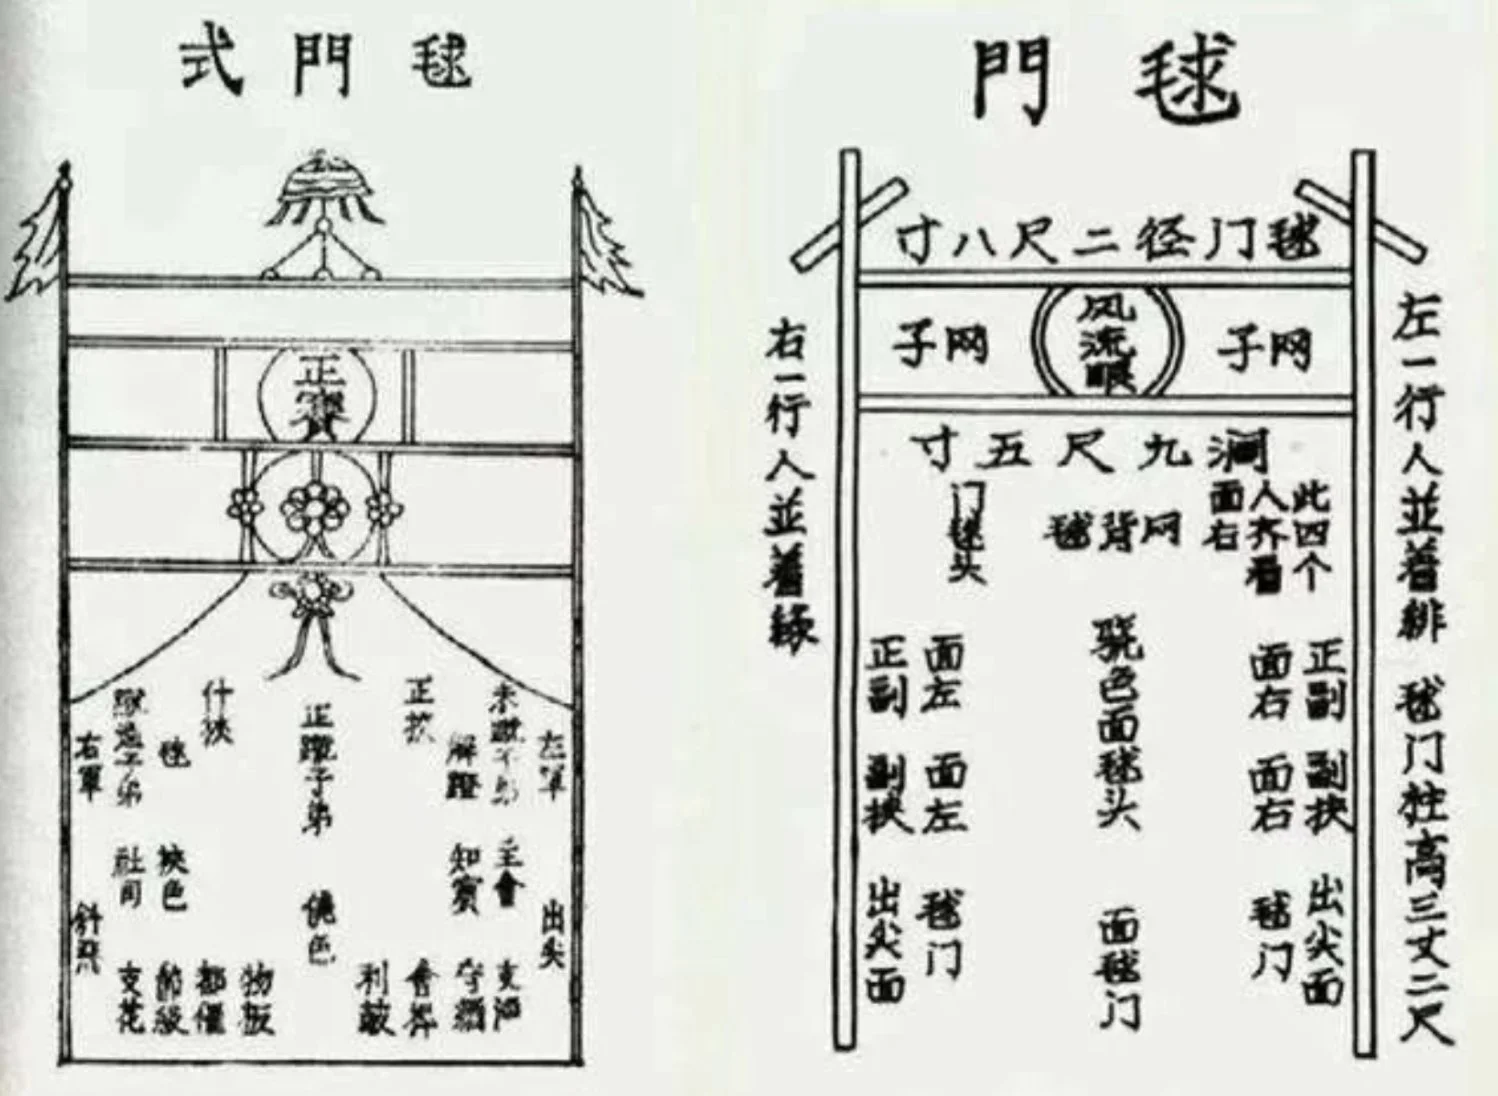 毬門式
左軍
出尖
主會
支酒
解蹬
知賓
正挾
正蹴子弟
僥色
什挾
都催
挾色
節級
社司
支花
右軍
毬門
毬门径二尺八寸
网子
风流眼
网子
左一行人並着緋
毬门拄高三丈二尺
右一行人並着緑
澗九尺五寸
此四个
人齐看
面右
网背毬
门毬头
正副
面右
副挟
面右
出尖面
毬门
骁色面毬头
面毬门
面左
正副
面左
副挟
毬门
出尖面